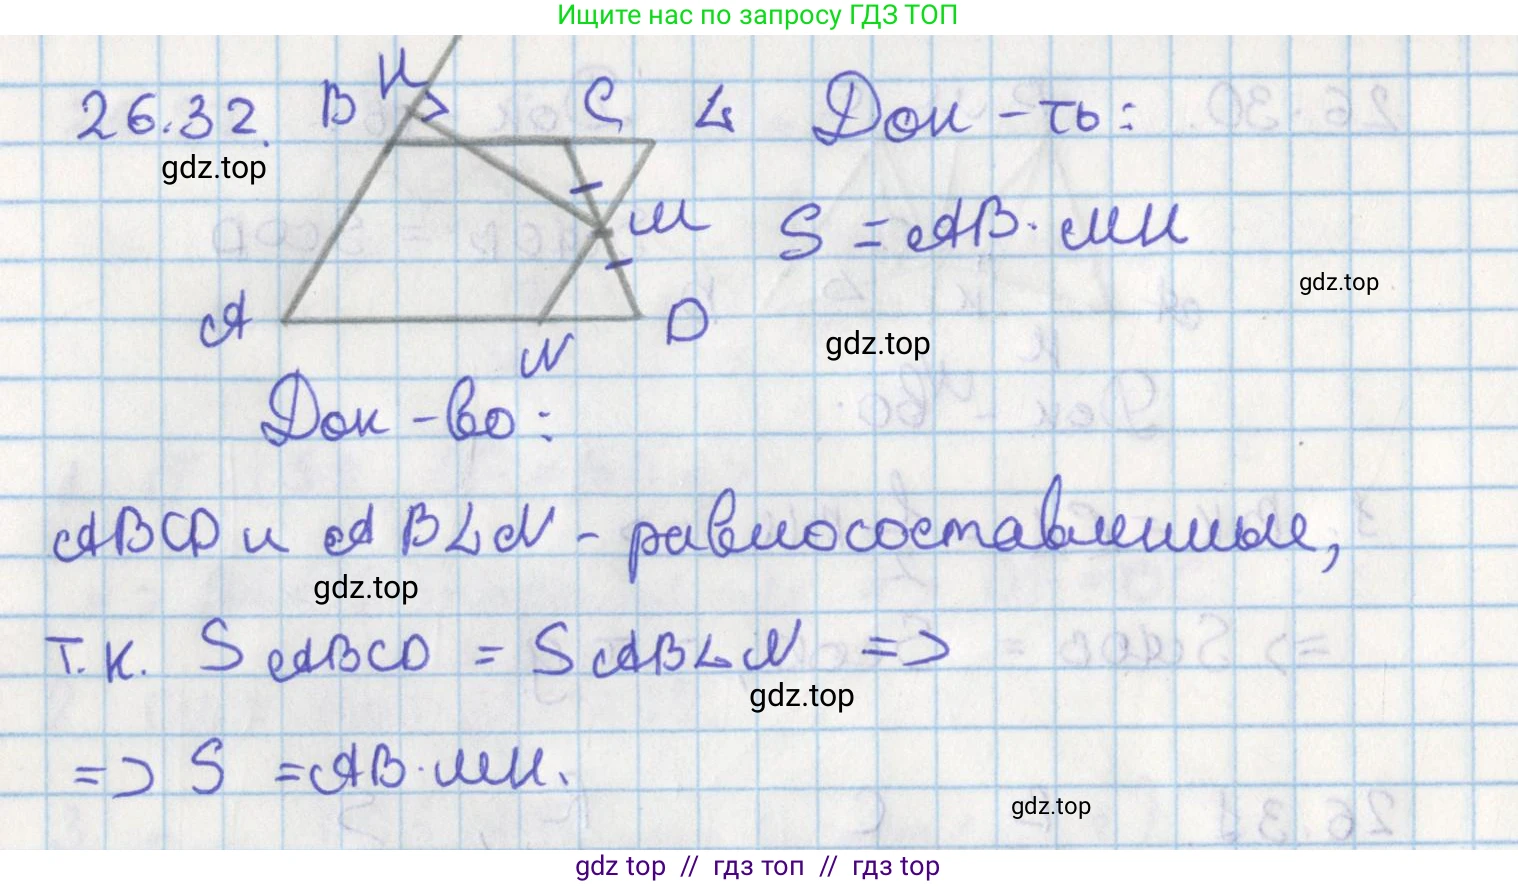 Ищите нас по запросу ГДЗ ТОП
26.32. B K C L Док-ть:
gdz.top
M S = AB · MK
gdz.top
A D
gdz.top
N
Док-во:
ABCD и ABLN - равносоставленные,
gdz.top
т.к. S ABCD = S ABLN =>
gdz.top
=> S = AB · MK.
gdz.top
gdz top // гдз топ // гдз top